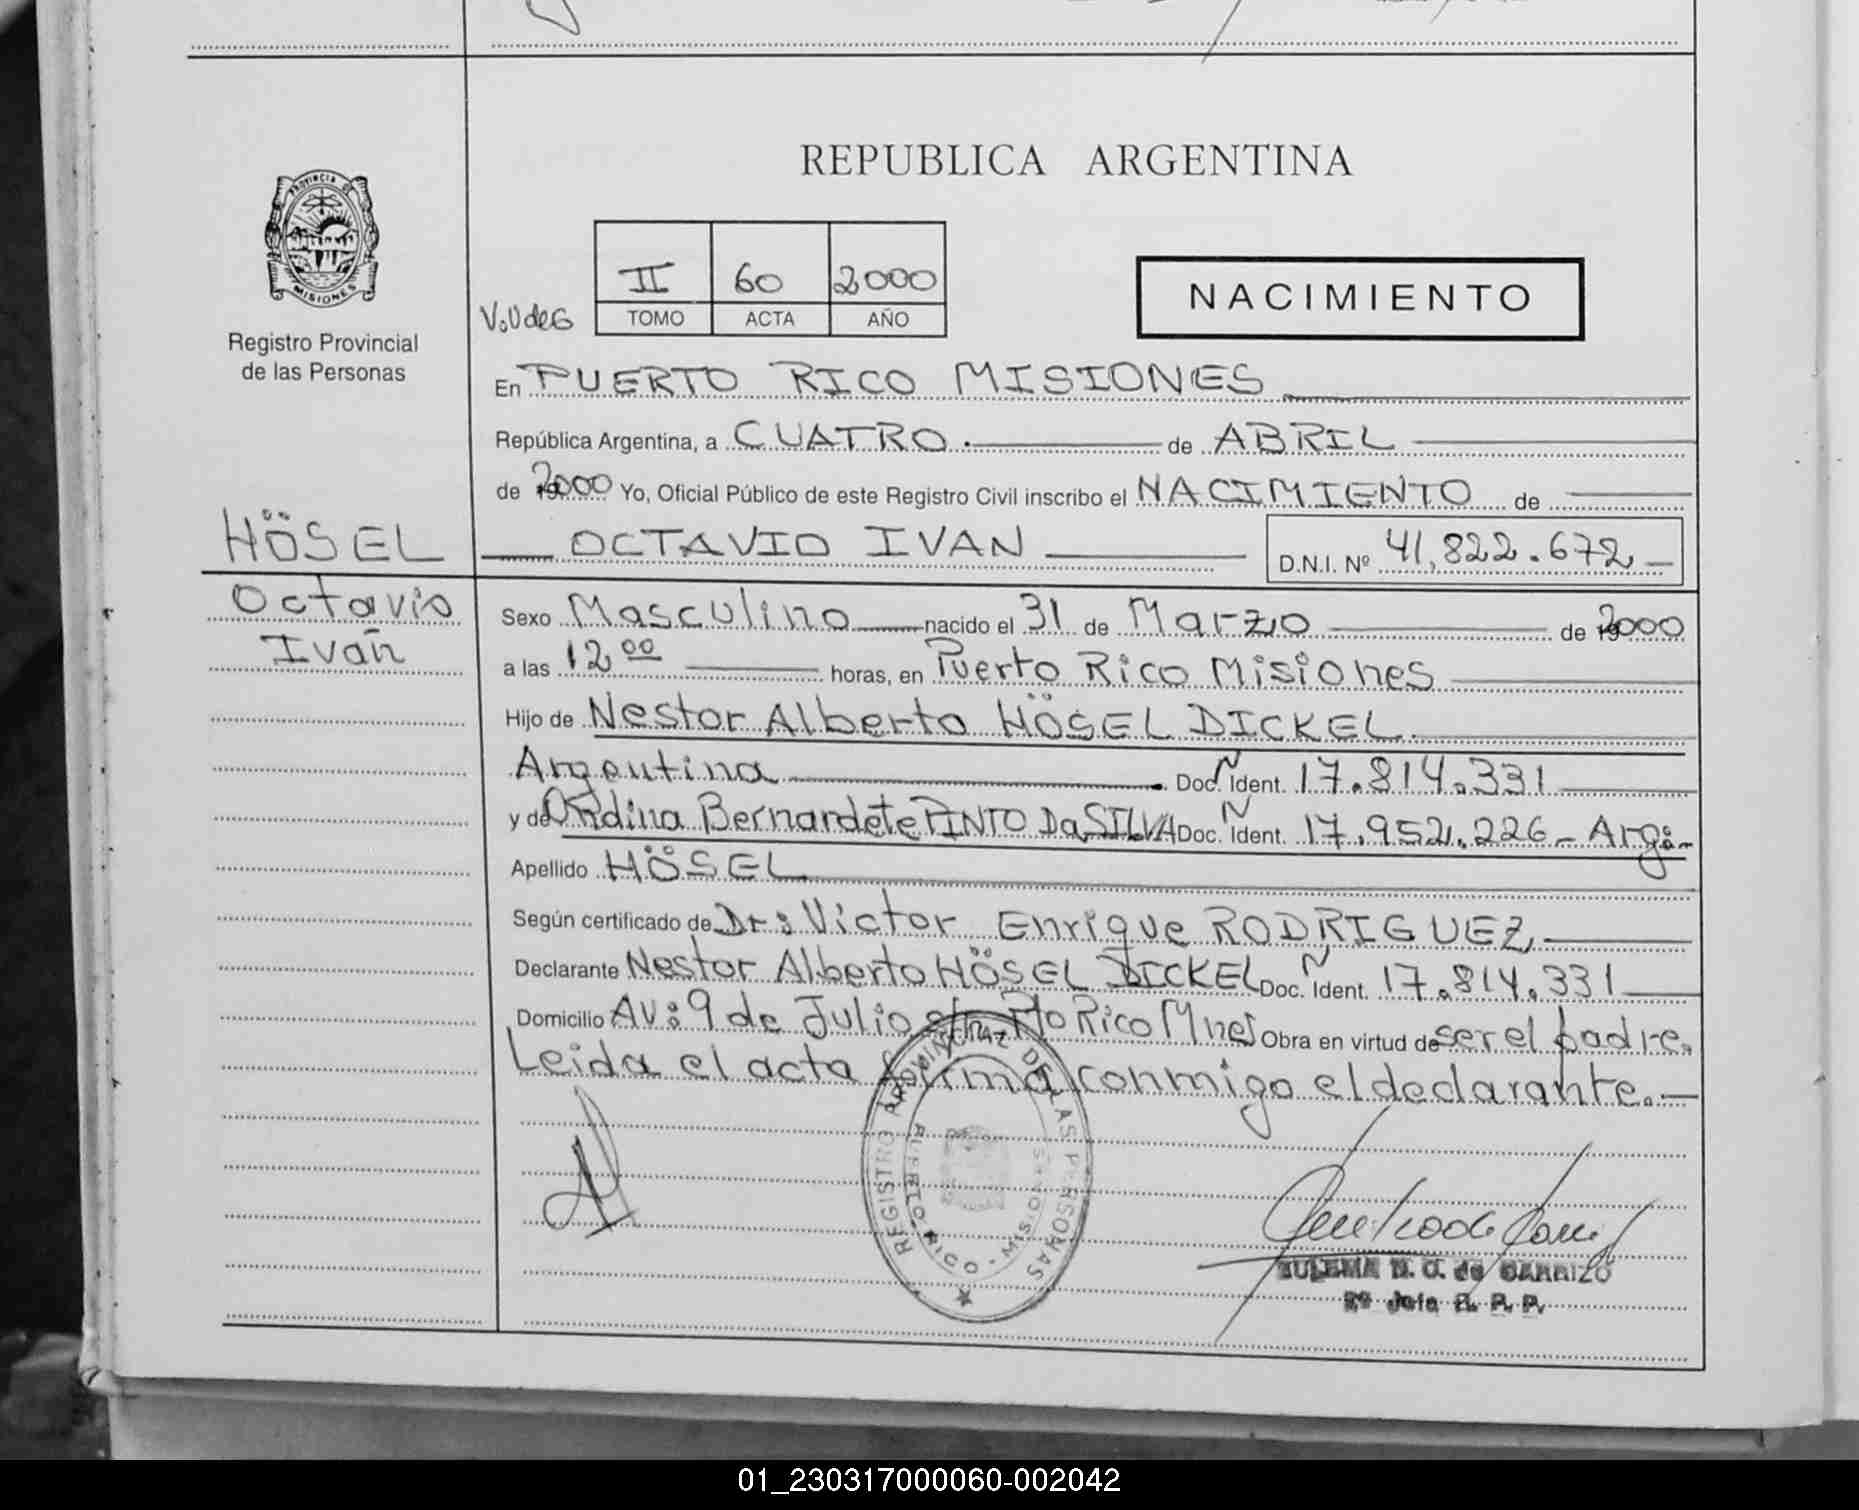 REPUBLICA ARGENTINA
PROVINCIA DE
MISIONES
Registro Provincial
de las Personas
II 60 2000
TOMO ACTA AÑO
NACIMIENTO
En PUERTO RICO MISIONES
República Argentina, a CUATRO. de ABRIL
de 2000 Yo, Oficial Público de este Registro Civil inscribo el NACIMIENTO de
HÖSEL
OCTAVIO IVAN D.N.I. Nº 41,822.672
Octavio
Ivan
Sexo Masculino nacido el 31 de Marzo de 2000
a las 12 00 horas, en Puerto Rico Misiones
Hijo de Nestor Alberto HÖSEL DICKEL.
Argentina Doc. Ident. 17.814.331
y de Ondina Bernardete PINTO Da SILVA Doc. Ident. 17.952.226 - Arg.
Apellido HÖSEL
Según certificado de Dr: Victor Enrique RODRIGUEZ,
Declarante Nestor Alberto HÖSEL DICKEL Doc. Ident. 17.814.331
Domicilio AV: 9 de Julio s/n Pto Rico Mnes Obra en virtud de ser el padre.
Leida el acta firma conmigo el declarante.-
REGISTRO PROVINCIAL DE LAS PERSONAS
PUERTO RICO - MISIONES
ZULEMA de CARRIZO
2º Jefa R. P. P.
01_230317000060-002042